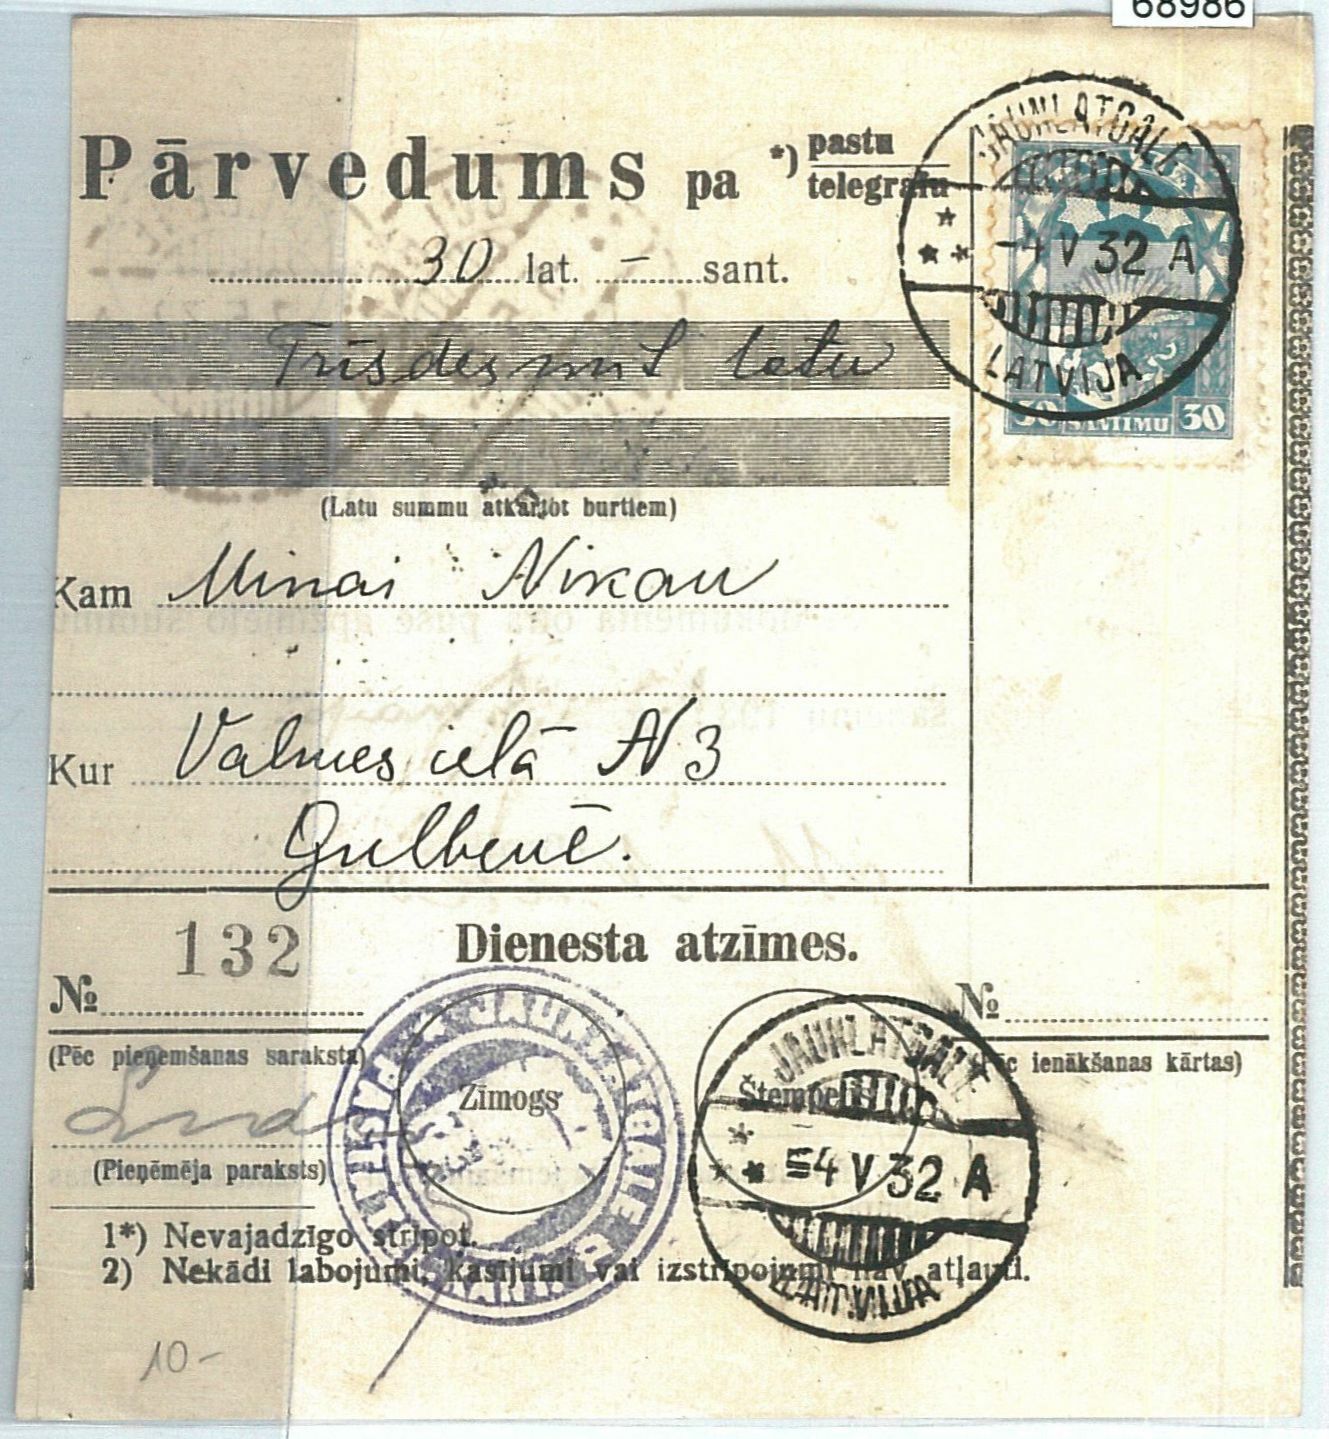 68986
Pārvedums pa *) pastu
telegrafu
30 lat. – sant.
Trīsdesmit latu
(Latu summu atkārtot burtiem)
Kam Minai Nikau
Kur Valmes ielā N 3
Gulbenē.
JAUNLATGALE
-4 V 32 A
LATVIJA
30 SANTIMU 30
Dienesta atzīmes.
№ 132
(Pēc pieņemšanas saraksta)
(Pieņēmēja paraksts)
Zīmogs
JAUNLATGALE
Stempelis
-4 V 32 A
LATVIJA
№
(Pēc ienākšanas kārtas)
1*) Nevajadzīgo stripot.
2) Nekādi labojumi, kasījumi vai izstripojumi nav atļauti.
10-